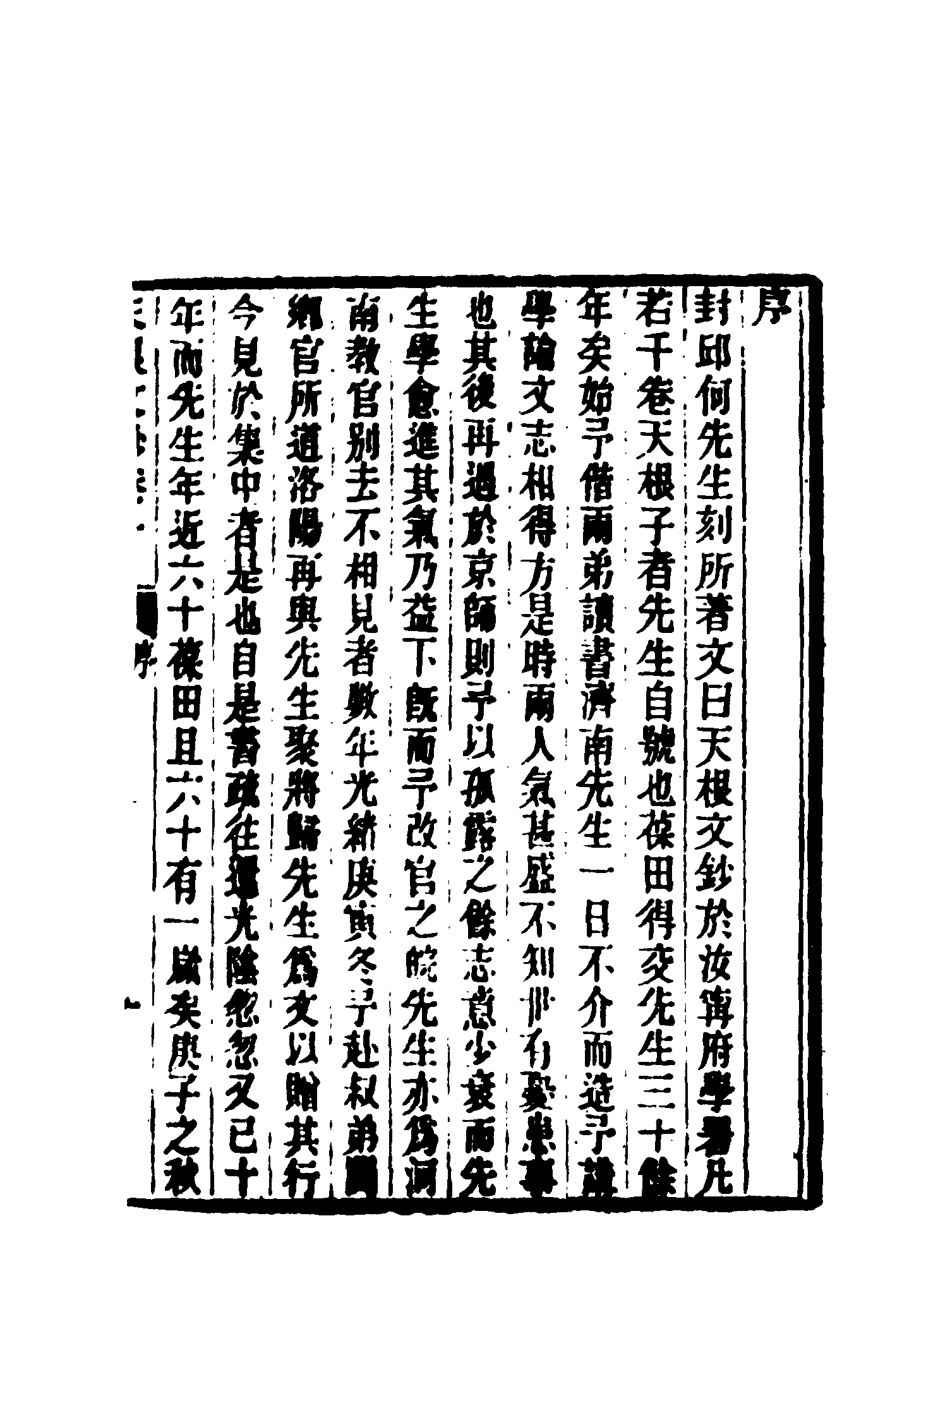 序
封邱何先生刻所著文曰天根文鈔於汝寗府學署凡
若干卷天根子者先生自號也葆田得交先生三十餘
年矣始予偕兩弟讀書濟南先生一日不介而造予講
學論文志相得方是時兩人氣甚盛不知世有憂患事
也其後再遇於京師則予以孤露之餘志意少衰而先
生學愈進其氣乃益下旣而予改官之皖先生亦爲河
南教官別去不相見者數年光緒庚寅冬予赴叔弟
鄉官所道洛陽再與先生聚將歸先生爲文以贈其行
今見於集中者是也自是書疏往還光陰忽忽又已十
年而先生年近六十葆田且六十有一歲矣庚子之秋
序